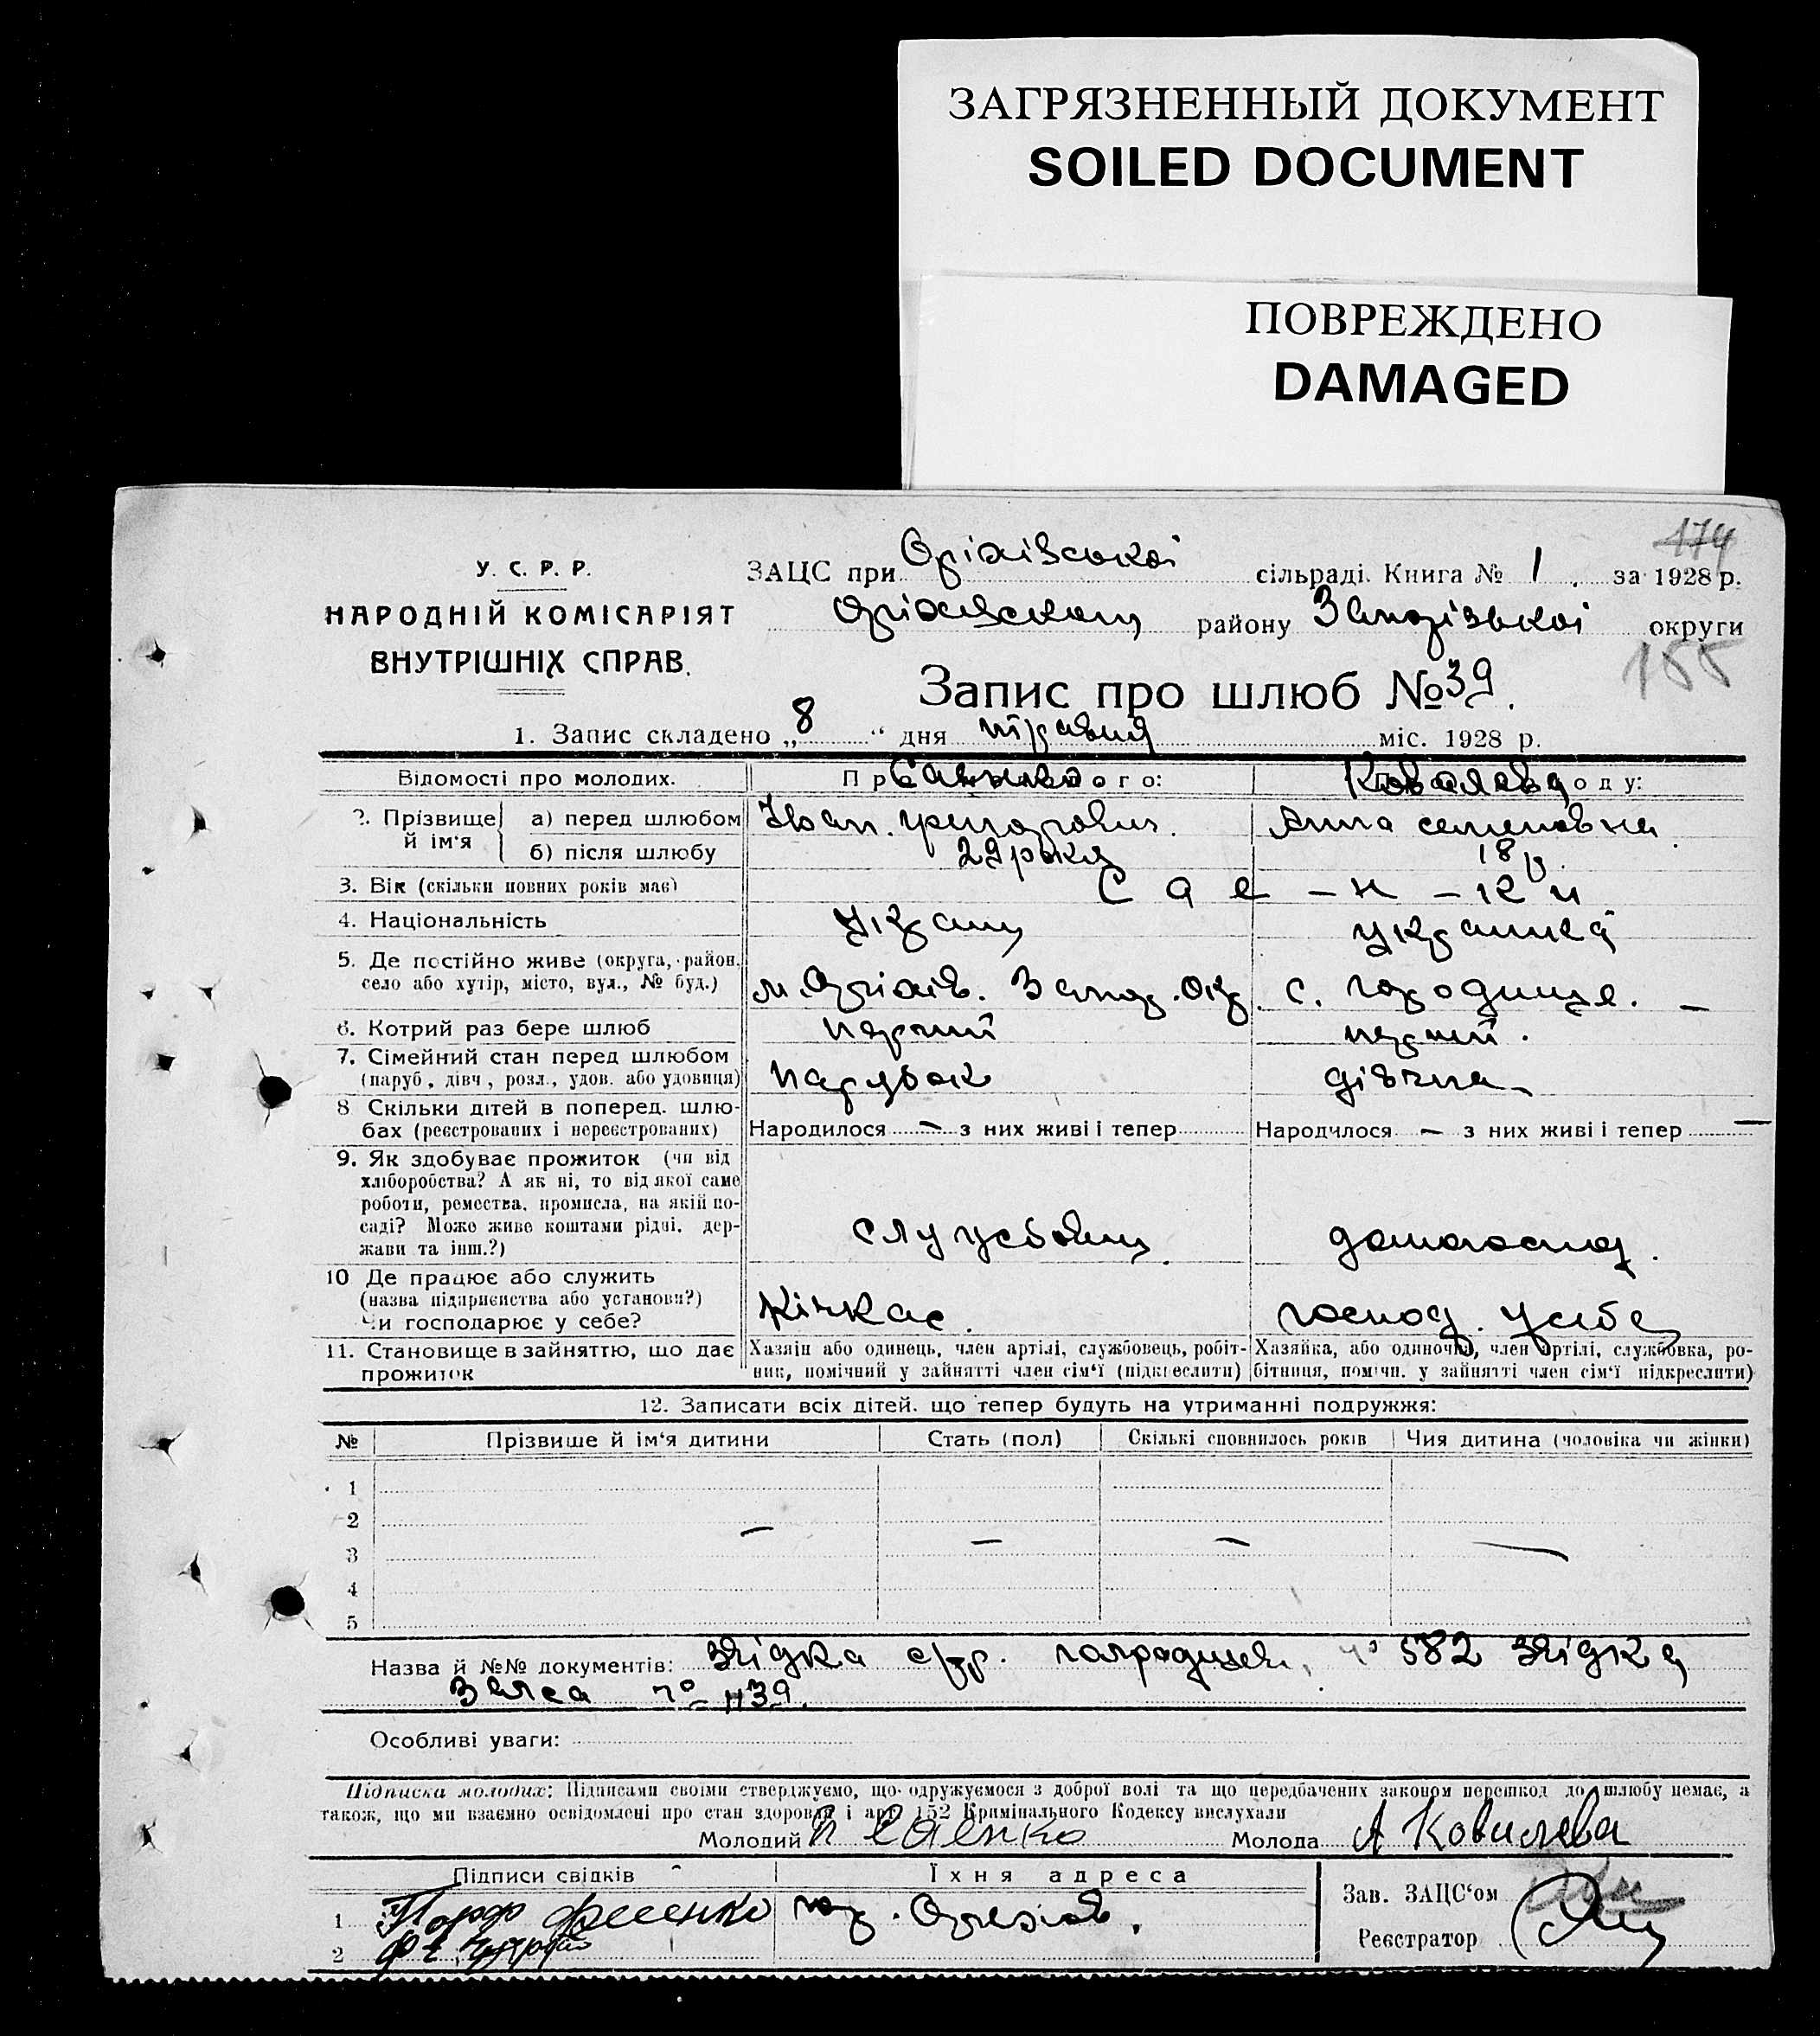 ЗАГРЯЗНЕННЫЙ ДОКУМЕНТ
SOILED DOCUMENT
ПОВРЕЖДЕНО
DAMAGED
174
У. С. Р. Р.
НАРОДНІЙ КОМІСАРІЯТ
ВНУТРІШНІХ СПРАВ.
ЗАЦС при Оріхівської сільраді. Книга № 1. за 1928 р.
району Запорізької округи
155
Запис про шлюб № 39.
1. Запис складено „8“ дня травня міс. 1928 р.
Відомості про молодих.
Саенко
Ковалева
2. Прізвище й ім‘я
а) перед шлюбом
Іван. Григорович.
Анна семеновна
б) після шлюбу
29 років
18 р.
3. Вік (скільки повних років має)
С а е – н – к и
4. Національність
Украин
украинка
5. Де постійно живе (округа, район, село або хутір, місто, вул., № буд.)
м. Оріхів. Запор. Окр.
с. городище. —
6. Котрий раз бере шлюб
перший
перший.
7. Сімейний стан перед шлюбом
(паруб., дівч., розл., удов. або удовиця)
парубок
дівчина
8 Скільки дітей в поперед. шлюбах (реєстрованих і нереєстрованих)
Народилося — з них живі і тепер
Народилося — з них живі і тепер —
9. Як здобуває прожиток (чи від
хліборобства? А як ні, то від якої саме
роботи, ремества, промисла, на якій по-
саді? Може живе коштами рідні, дер-
жави та інш.?)
службовець.
домогоспод.
10 Де працює або служить
(назва підприємства або установи?)
Чи господарює у себе?
Кічкас.
господ. у себе
11. Становище в зайняттю, що дає прожиток
Хазяїн або одинець, член артілі, службовець, робіт-
ник, помічний у зайнятті член сім‘ї (підкреслити)
Хазяйка, або одиночка, член артілі, службовка, ро-
бітниця, помічн. у зайнятті член сім‘ї підкреслити)
12. Записати всіх дітей, що тепер будуть на утриманні подружжя:
№ Прізвище й ім‘я дитини Стать (пол) Скількі сповнилось років Чия дитина (чоловіка чи жінки)
1
2
— — — —
3
4
5
Назва й №№ документів: звідка с/р. № 582 звідка
Загса № 1139.
Особливі уваги:
Підписка молодих: Підписами своїми стверджуємо, що одружуємося з доброї волі та що передбачених законом перешкод до шлюбу немає, а
також, що ми взаємно освідомлені про стан здоровля і арт. 152 Кримінального Кодексу вислухали
Молодий Саенко Молода А Ковалева
Підписи свідків Їхня адреса
1
2
Зав. ЗАЦС‘ом
Реєстратор